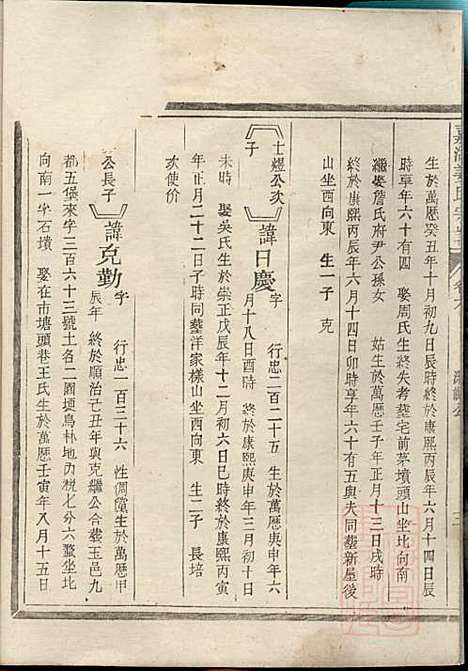 生於萬歷癸丑年十月初九日辰時終於康熙丙辰年六月十四日辰
時享年六十有四 娶周氏生終失考塟宅前茅墳頭山坐北向南
繼娶詹氏府尹公孫女 姑生於萬歷壬子年正月十三日戌時
終於康熙丙辰年六月十四日卯時享年六十有五與夫同塟新屋後
山坐西向東 生一子 克
士煜公次子
諱日慶 字 行忠二百二十五 生於萬歷庚申年六
月十八日酉時 終於康熙庚申年三月初十日
未時 娶吳氏生於崇正戊辰年十二月初六日巳時終於康熙丙寅
年正月二十二日子時同塟洋家樣山坐西向東 生二子 長培
次使价
公長子
諱克勤 字 行忠一百三十六 性倜儻生於萬歷甲
辰年 終於順治己丑年與克繼公合塟玉邑九
都五堡來字三百六十三號土名二圓墳烏林地內稅七分六塟坐北
向南一字石墳 娶在市塘頭巷王氏生於萬歷壬寅年八月十五日